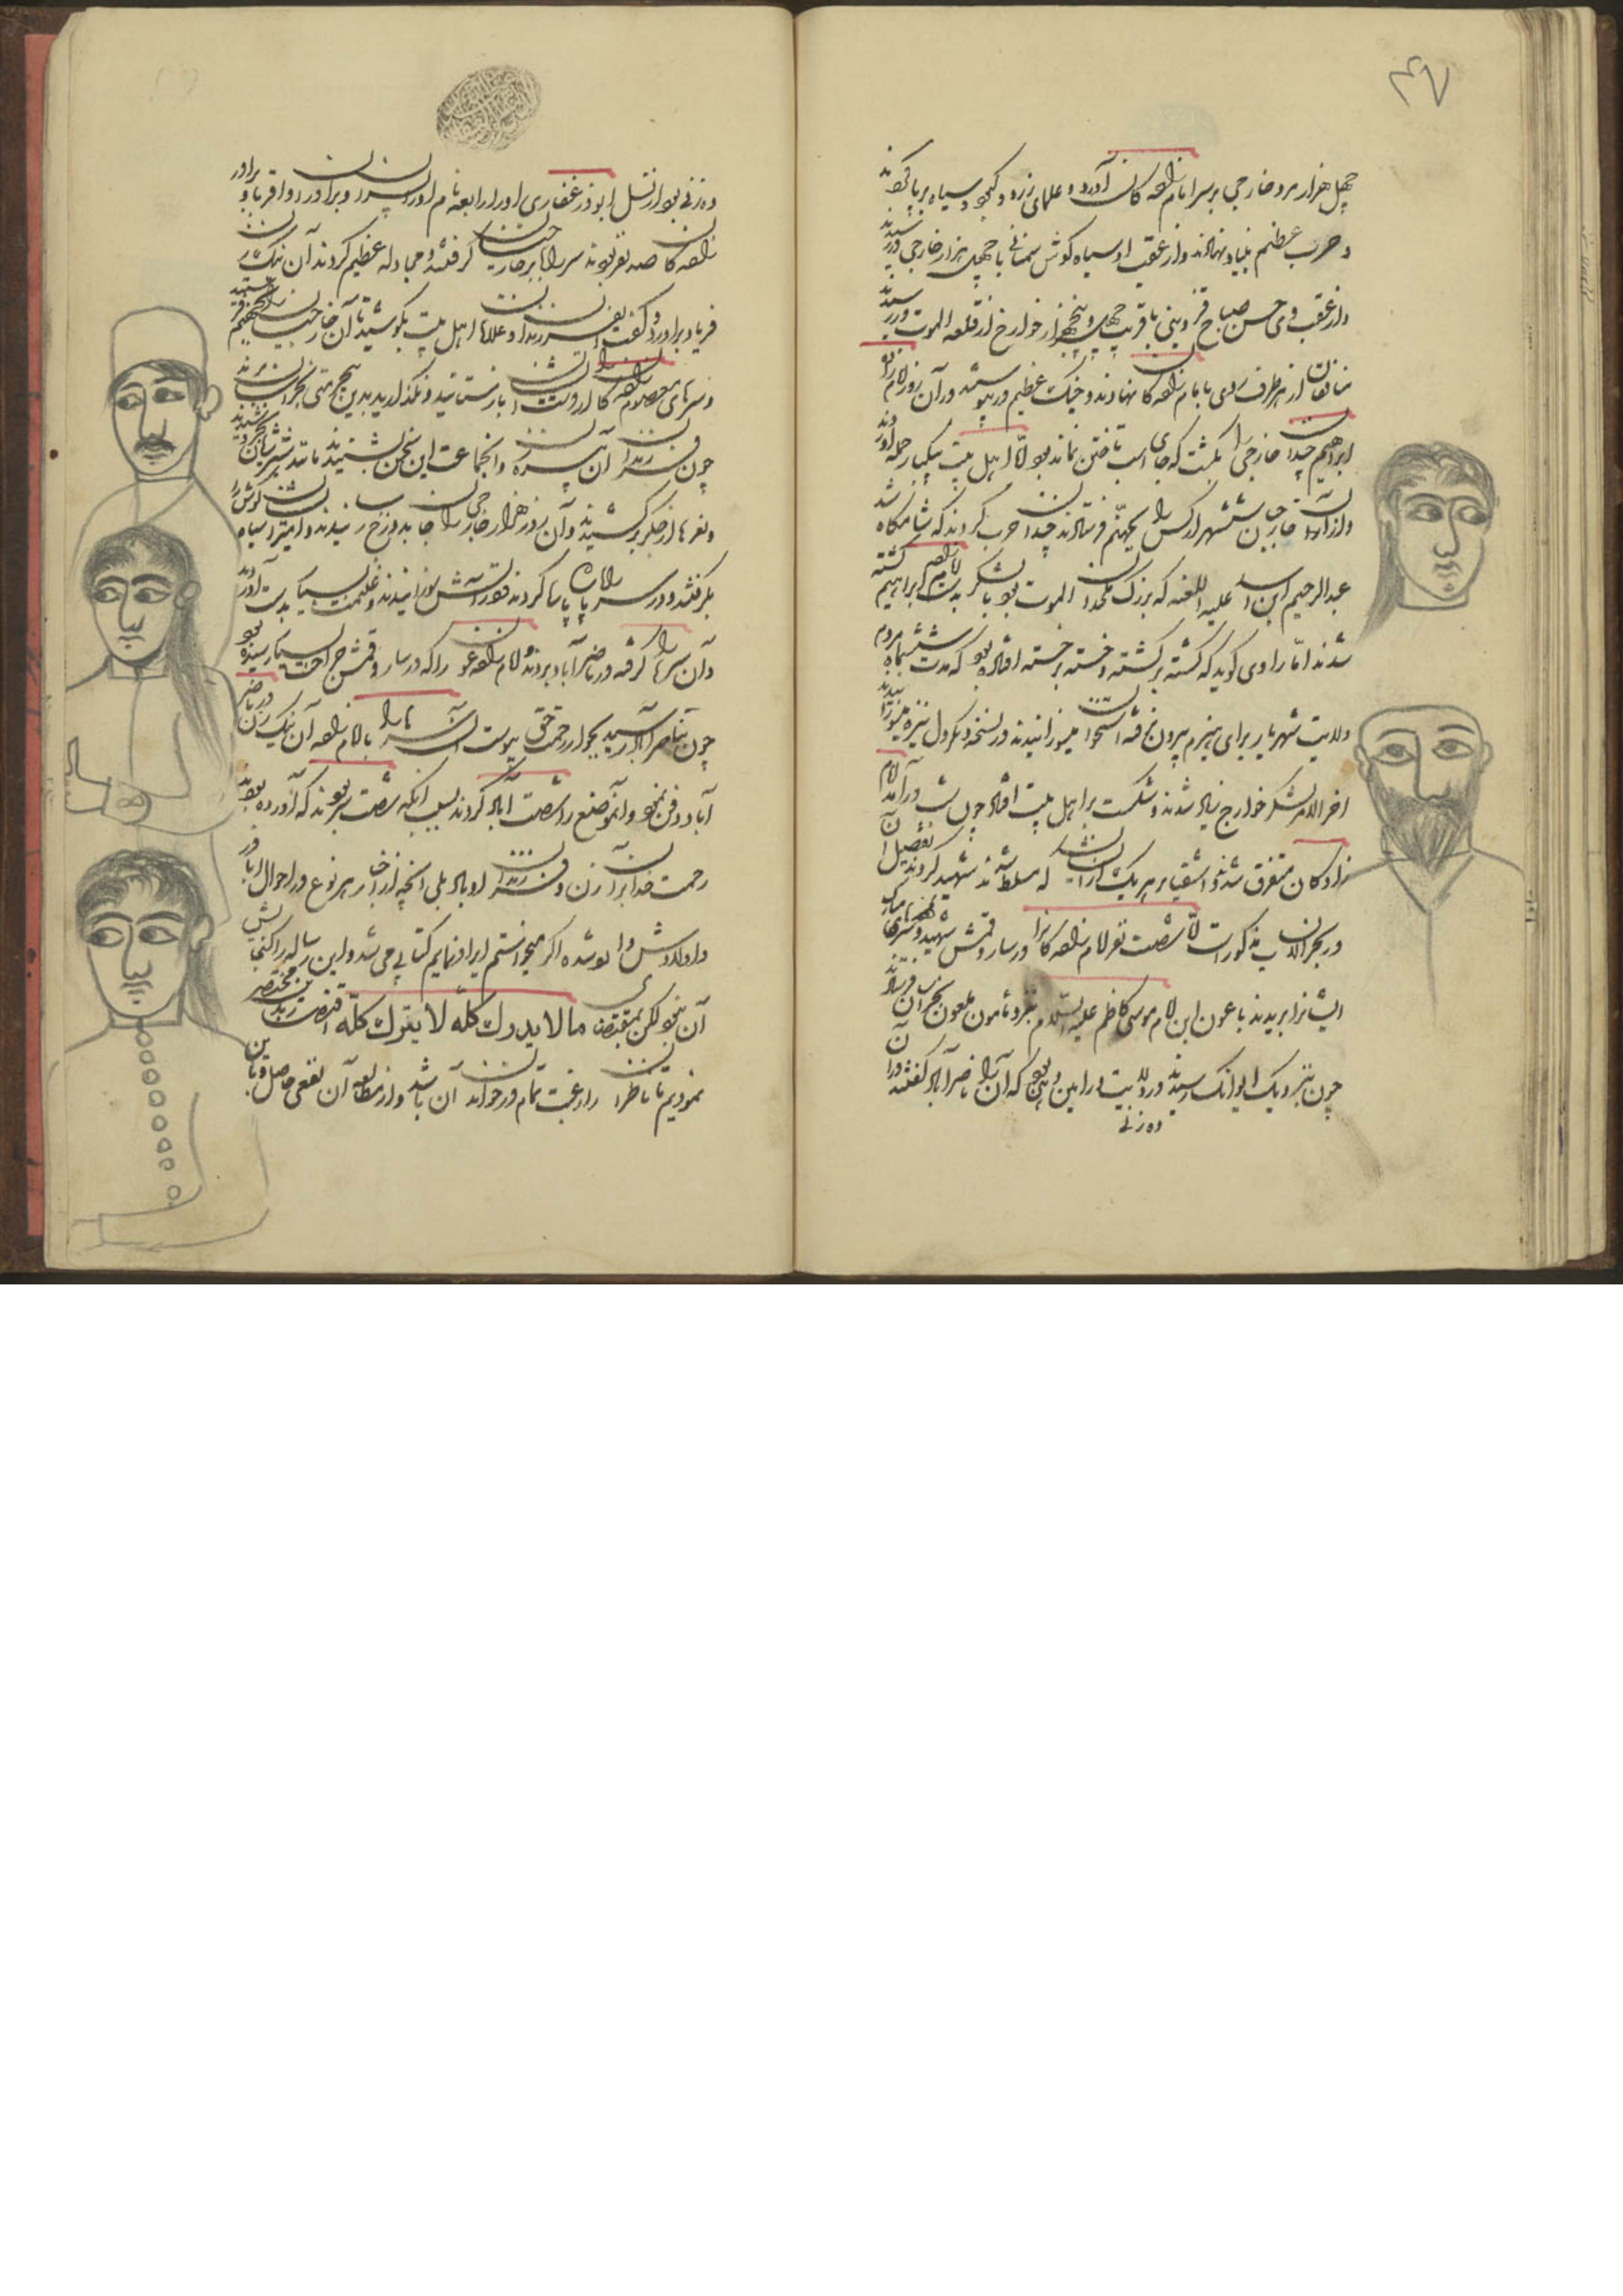 ۴۷
چهل هزار مرد خارجی بر سر امامزاده کان آوردند و علمهای زرد و کبود و سیاه برپا کردند
و حرب عظیم بنیاد نهادند و از عقب او سیاه گوش سمنانی با چهل هزار خارجی در رسیدند
و از عقب وی حسن صباح قزوینی با قریب چهل و پنجهزار خوارج از قلعه الموت در رسیدند
منافقان از هر طرف روی با امامزاده کان نهادند و جنگ عظیم در پیوستند و در آن روز امامزاده
ابراهیم چندان خارجی را بکشت که جای اسب تاختن نمانده بود اما اهل بیت بیکبار حمله آوردند
و از آن خارجیان شش هزار کس را بجهنم فرستادند چندان حرب کردند که شامگاه شد
عبدالرحیم ابن علیه اللعنه که بزرگ ملحدان الموت بود با لشکر بدست امامزاده ابراهیم کشته
شدند اما راوی گوید که کشته بر کشته و خسته بر خسته افتاده بود که مدت ششماه مردم
ولایت شهریار برای هیزم بیرون نرفته استخوان میسوزانیدند و در نسخه دیگر دل نیزه میسوزانیدند
آخر الامر لشکر خوارج زیاد شدند و شکست بر اهل بیت افتاد چون شب در آمد امام
زادگان متفرق شدند و اشقیا بر هر یک از ایشان که مسلط شدند شهید کردند بتفصیل آن
در بحر الانساب مذکور است اما شصت نفر امامزاده کان را در سار و قمش شهید و سرهای مبارک
ایشان را بریدند با عون ابن امام موسی کاظم علیه السلام بنزد مأمون ملعون بخراسان فرستادند
چون بنزدیک ایوانک رسیدند در ولایت ورامین دهی بود که آن را ناصرآباد گفتندی و در آن
ده زنی
ده زنی بود از نسل ابوذر غفاری او را رابعه نام او را پسران و برادران و اقربا و برادر
زاده کان صد نفر بودند سر راه بر خارجیان گرفتند و مجادله عظیم کردند آن نیک زن
فریاد برآورد و گفت ای فرزندان و غلامان اهل بیت بکوشید تا آن خارجیان را بجهنم فرستید
و سرهای معصوم زاده کان را از دست ایشان باز ستانید و نگذارید بدین بیحرمتی بخراسان برند
چون فرزندان آن پیره زن و آنجماعت این سخن بشنیدند مانند شیران بخروشیدند
و نعرها از جگر برکشیدند و آن روز هزار خارجی را جا بدوزخ رسانیدند و امیر سیاه گوش را
بگرفتند و در سر راه پاپاسا کردند فوراً آتش سوزانیدند و غنیمت بسیار بدست آوردند
و آن سرها را گرفته در ناصرآباد بردند و امامزاده عون را که در سار و قمش جراحت بسیار رسیده بود
چون بناصرآباد رسید بجوار رحمت حق پیوست آن سرها را با امامزاده آن نیک زن در ناصر
آباد دفن نمود و آنموضع را شصت آباد کردند بسبب آنکه شصت سر بودند که آورده بودند
رحمت خدا بر آن زن و فرزندان او باد بلی آنچه از اخبار هر نوع در احوال ابا ذر
و اولادش وارد شده اگر میخواستم ایراد نمایم کتابی می شد و این رساله را گنجایش
آن نبود لکن بمقتضای ما لا یدرک کله لا یترک کله اقتصار بدین مختصر
نمودیم تا ناظران را رغبت تمام در خواندن آن باشد و از مطالعه آن نفعی حاصل